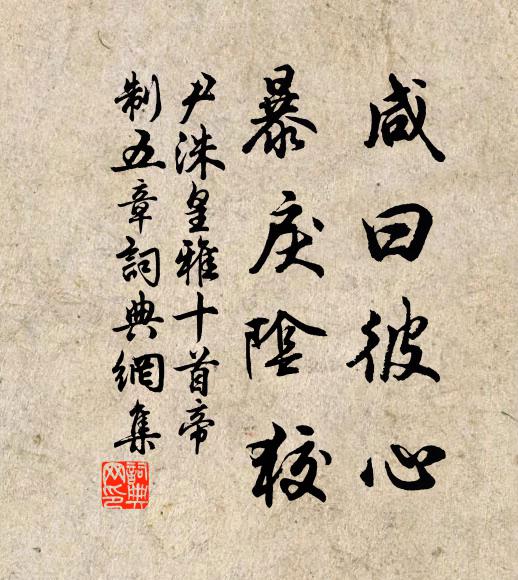 咸曰彼心
暴戾陰狡
尹洙皇雅十首帝
制五章詞典網集
詞典网印